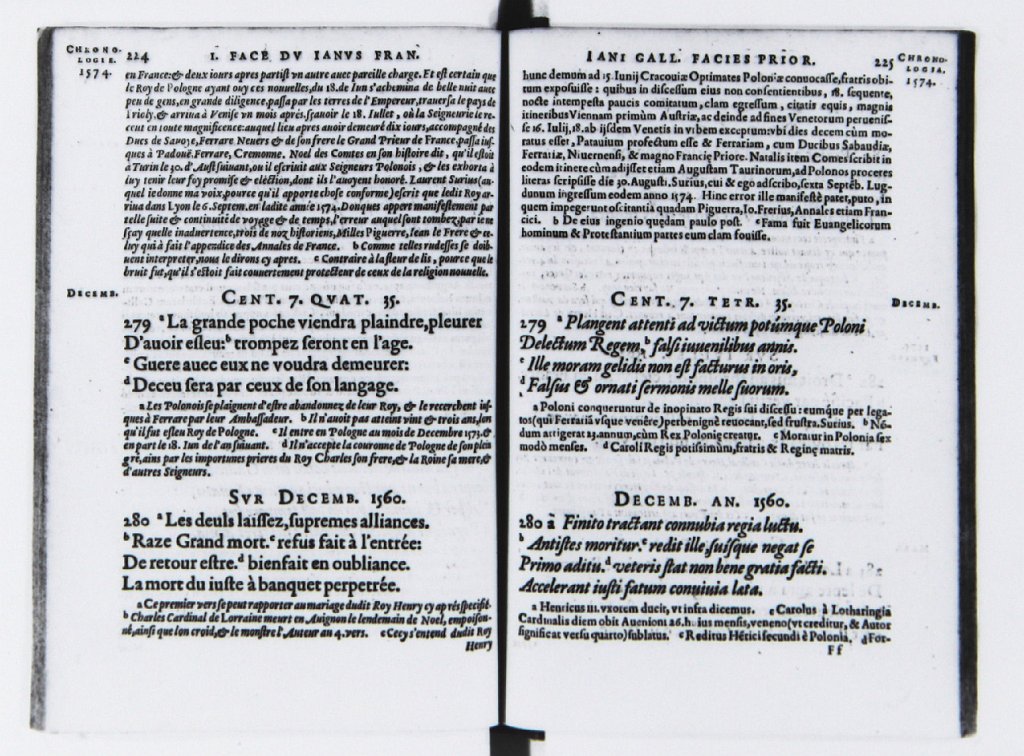 CHRONO-
LOGIE.
1574.
224 I. FACE DV IANVS FRAN.
en France:& deux iours apres partist vn autre auec pareille charge. Et est certain que
le Roy de Pologne ayant ouy ces nouuelles,du 18.de Iun s'achemina de belle nuit auec
peu de gens,en grande diligence,passa par les terres de l'Empereur,trauersa le pays de
Tirioly,& arriua à Venise vn mois apres,sçauoir le 18. Iullet, où la Seigneurie le re-
ceut en toute magnificence:auquel lieu apres auoir demeuré dix iours,accompagné des
Ducs de Sauoye,Ferrare Neuers & de son frere le Grand Prieur de France,passa ius-
ques à Padouë,Ferrare, Cremonne. Noel des Comtes en son histoire dit, qu'il estoit
à Turin le 30. d'Aust suiuant,ou il escriuit aux Seigneurs Polonois, & les exhorta à
luy tenir leur foy promise & election,dont ils l'auoyent honoré. Laurent Surius(au-
quel ie donne ma voix,pource qu'il apporte chose conforme)escrit que ledit Roy ar-
riua dans Lyon le 6.Septem.en ladite année 1574.Donques appert manifestement par
telle suite & continuité de voyage & de temps,l'erreur auquel sont tombez,par ie ne
sçay quelle inaduertence,trois de noz historiens,Milles Piguerre,Iean le Frere & ce-
luy qui à fait l'appendice des Annales de France. b Comme telles rudesses se doib-
uent interpreter,nous le dirons cy apres. c Contraire à la fleur de lis, pource que le
bruit fut,qu'il s'estoit fait couuertement protecteur de ceux de la religion nouuelle.
DECEMB.
CENT. 7. QVAT. 35.
279 a La grande poche viendra plaindre,pleurer
D'auoir esleu:b trompez seront en l'age.
c Guere auec eux ne voudra demeurer:
d Deceu sera par ceux de son langage.
a Les Polonois se plaignent d'estre abandonnez de leur Roy, & le recerchent ius-
ques à Ferrare par leur Ambassadeur. b Il n'auoit pas atteint vint & trois ans,lors
qu'il fut esleu Roy de Pologne. c Il entre en Pologne au mois de Decembre 1573.&
en part le 18. Iun de l'an suiuant. d Il n'accepte la couronne de Pologne de son plein
gré,ains par les importunes prieres du Roy Charles son frere,& la Roine sa mere,&
d'autres Seigneurs.
SVR DECEMB. 1560.
280 a Les deuls laissez,supremes alliances.
b Raze Grand mort.c refus fait à l'entrée:
De retour estre.d bienfait en oubliance.
La mort du iuste à banquet perpetrée.
a Ce premier vers se peut rapporter au mariage dudit Roy Henry cy aprés specifié.
b Charles Cardinal de Lorraine meurt en Auignon le lendemain de Noel, empoison-
né,ainsi que lon croid,& le monstre l'Auteur au 4. vers. c Cecy s'entend dudit Roy
Henry
IANI GALL. FACIES PRIOR. 225
CHRONO-
LOGIA.
1574.
hunc demum ad 15. Iunij Cracouiæ Optimates Poloniæ conuocasse,fratris obi-
tum exposuisse : quibus in discessum eius non consentientibus, 18. sequente,
nocte intempesta paucis comitatum, clam egressum, citatis equis, magnis
itineribus Viennam primùm Austriæ, ac deinde ad fines Venetorum peruenis-
se 16. Iulij,18.ab ijsdem Venetis in vrbem exceptum:vbi dies decem cùm mo-
ratus esset, Patauium profectum esse & Ferrariam, cum Ducibus Sabaudiæ,
Ferrariæ, Niuernensi, & magno Francię Priore. Natalis item Comes scribit in
eodem itinere cùm adisset etiam Augustam Taurinorum,ad Polonos proceres
literas scripsisse die 30.Augusti. Surius, cui & ego adscribo,sexta Septēb. Lug-
dunum ingressum eodem anno 1574. Hinc error ille manifestè patet,puto, in
quem impegerunt oscitantia quadam Piguerra, Io.Frerius,Annales etiam Fran-
cici. b De eius ingenio quędam paulo post. c Fama fuit Euangelicorum
hominum & Protestantium partes eum clam fouisse.
DECEMB.
CENT. 7. TETR. 35.
279 a Plangent attenti ad victum potúmque Poloni
Delectum Regem,b falsi iuuenilibus annis.
c Ille moram gelidis non est facturus in oris,
d Falsus & ornati sermonis melle suorum.
a Poloni conqueruntur de inopinato Regis sui discessu : eumque per lega-
tos(qui Ferrariā vsque venêre)perbenignè reuocant,sed frustra.Surius. b Nō-
dum attigerat 23.annum,cùm Rex Polonię creatur. c Moratur in Polonia sex
modò menses. d Caroli Regis potissimùm,fratris & Reginę matris.
DECEMB. AN. 1560.
280 a Finito tractant connubia regia luctu.
b Antistes moritur.c redit ille,suisque negat se
Primo aditu.d veteris stat non bene gratia facti.
Accelerant iusti fatum conuiuia lata.
a Henricus III. vxorem ducit, vt infra dicemus. c Carolus à Lotharingia
Cardinalis diem obit Auenioni 26.huius mensis,veneno(vt creditur, & Autor
significat versu quarto)sublatus. c Reditus Hērici secundi è Polonia. d For-
Ff